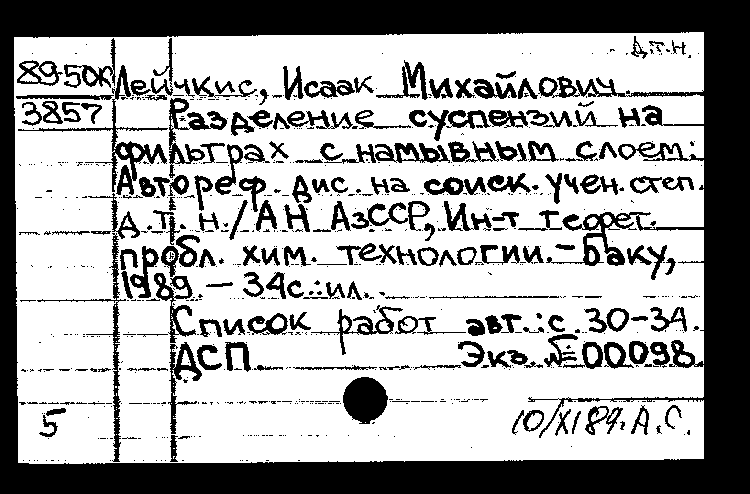 д.т.н.
89-50К Лейчкис, Исаак Михайлович.
3857 Разделение суспензий на
фильтрах с намывным слоем:
Автореф. дис. на соиск. учен. степ.
д.т.н./АН АзССР, Ин-т теорет.
пробл. хим. технологии.-Баку,
1989.- 34с.:ил.
Список работ авт.:с.30-34.
ДСП. Экз.№00098.
5 10/XI 89. А.С.